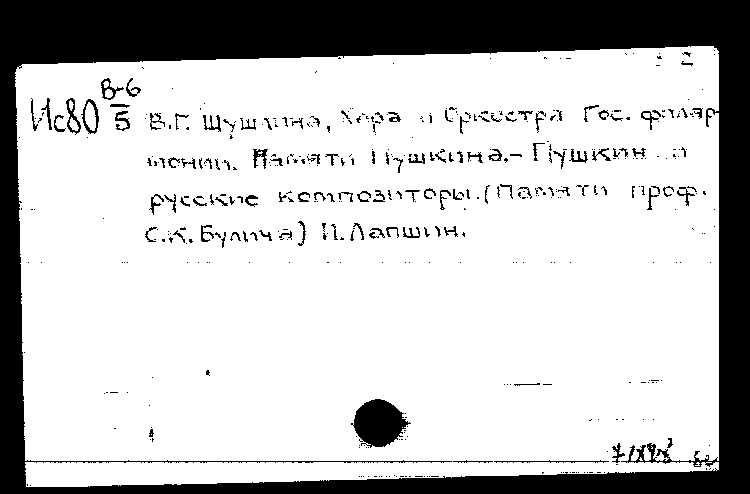 2
Ис80 В-6/5 В.Г. Шушлина, Хора и Оркестра Гос. филяр-
монии. Памяти Пушкина.- Пушкин и
русские композиторы. (Памяти проф.
С.К. Булича) И. Лапшин.